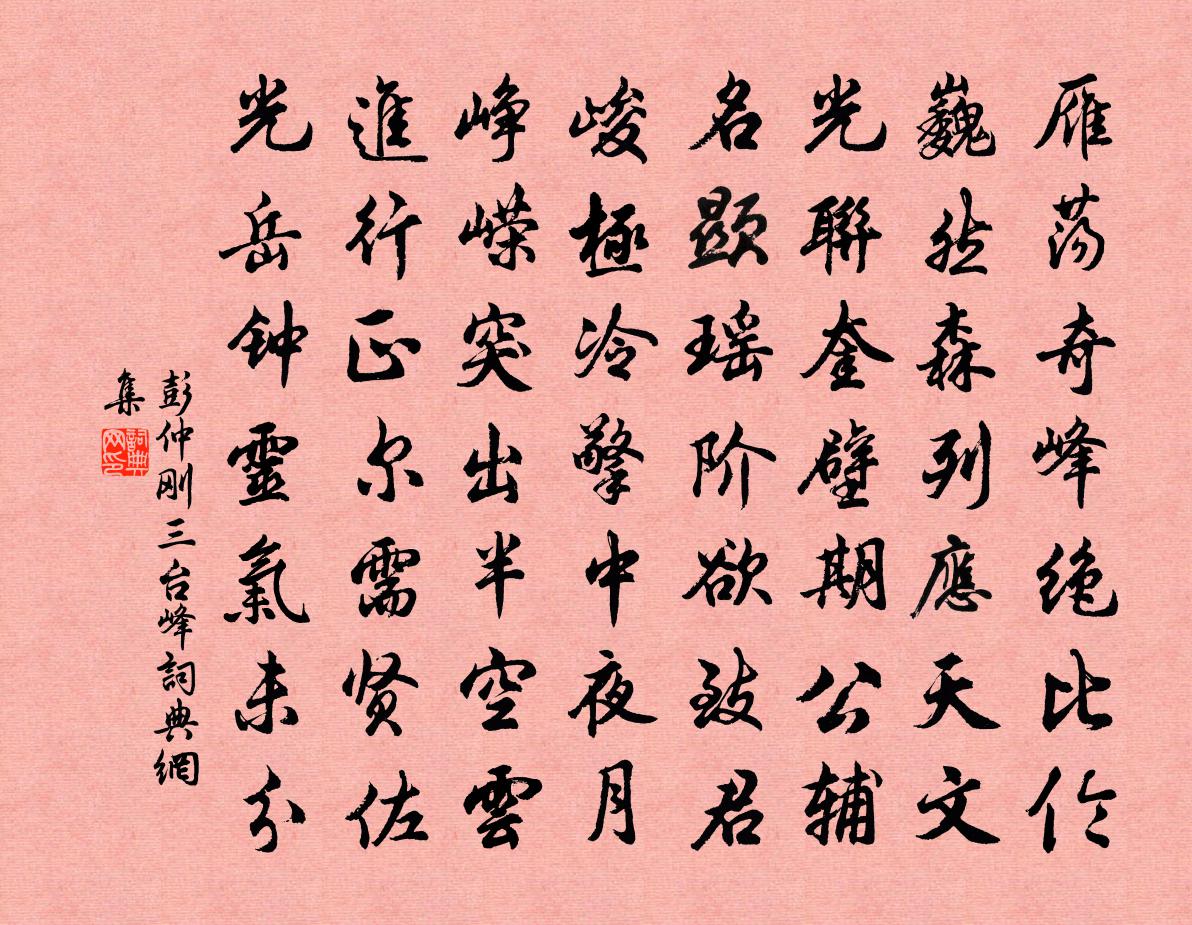 雁荡奇峰绝比伦
巍然森列應天文
光聯奎壁期公辅
名顯瑶阶欲致君
峻極冷擎中夜月
峥嵘突出半空雲
進行正尔需贤佐
光岳钟靈氣未分
彭仲刚三台峰詞典網
集
詞典
网印